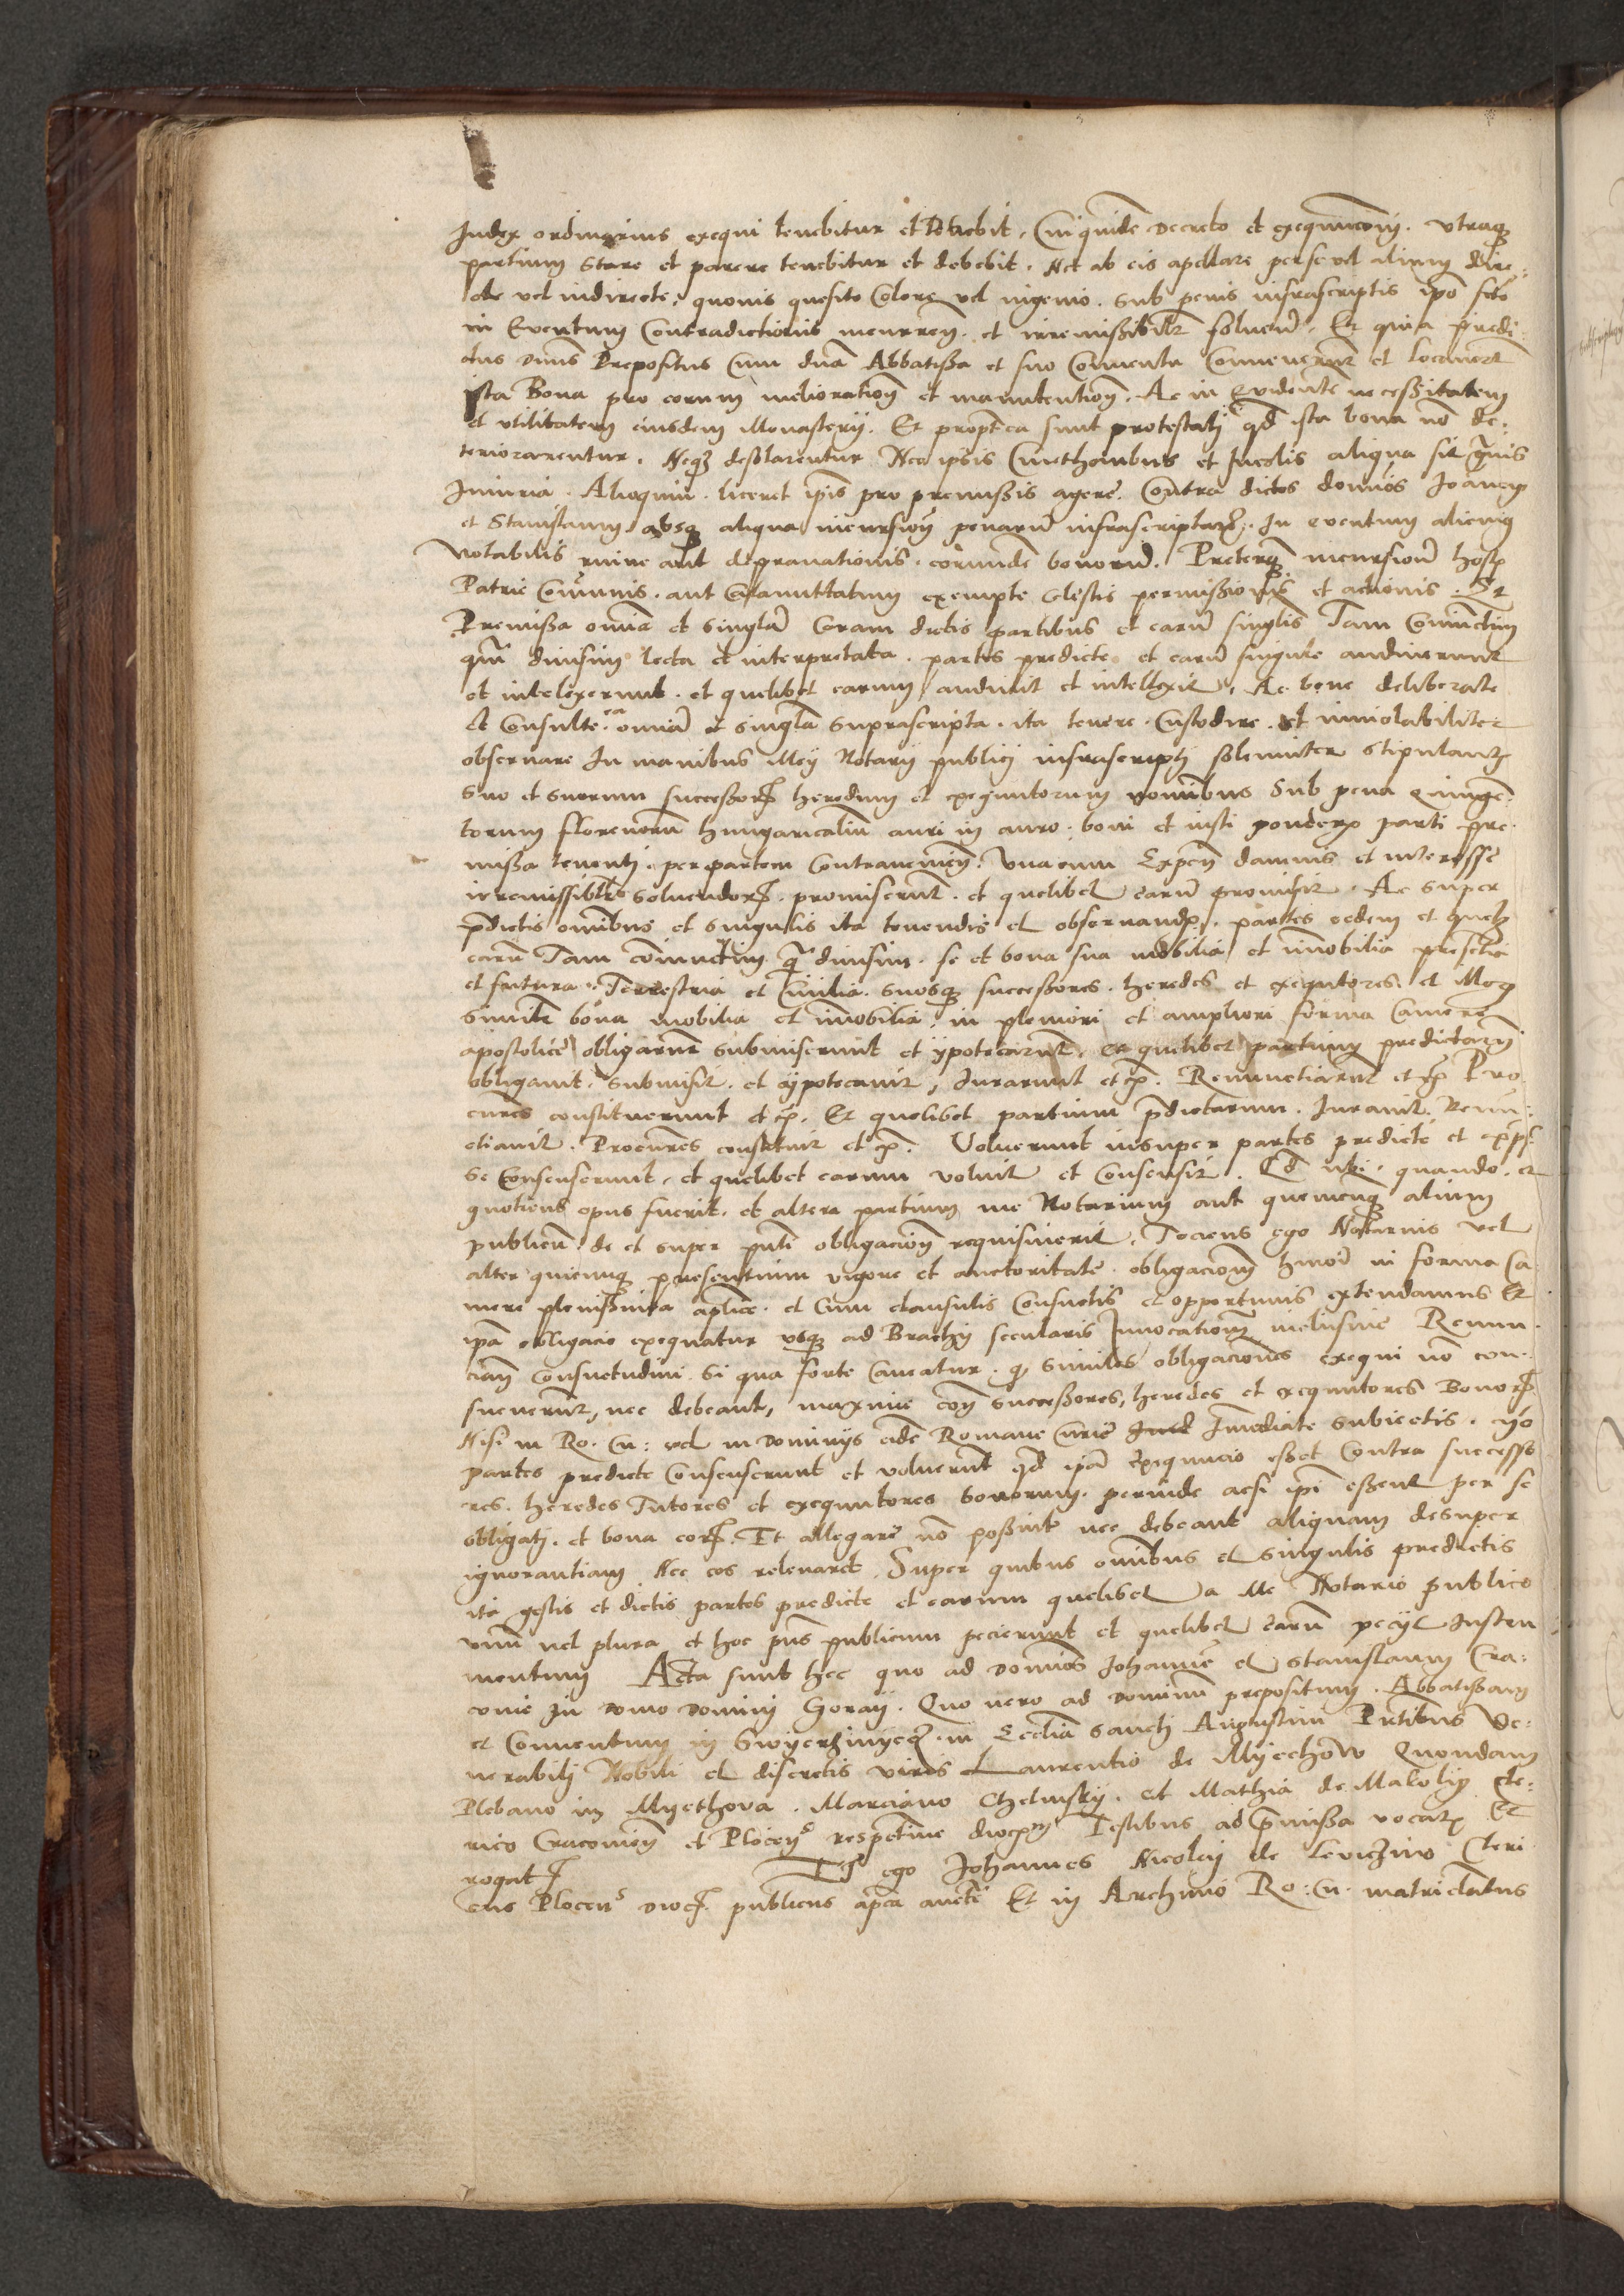 Judex ordinarius exequi tenebitur et debebit. Cui quidē decreto et exequucioni. utraq
partium stare et parere tenebitur et debebit. Nec ab eis apellare per se vel alium dire:
cte vel indirecte. quovis quesito Colore vel ingenio. sub penis infrascriptis ipso fcto
in Eventum Contradictionis incurreñ. et irremissibilr solveñ. Et quia predi
ctus dnus Prepositus Cum dna Abbatissa et suo Conventu Convenerunt et locaverunt
ista Bona pro eorum melioratioñ et manutentioñ. Ac in Evidentē necessitatem
et utilitatem eiusdem Monasterij. Et proptea sunt protestatj qd ista bona nō de:
teriorarentur. Neq desolarentur Nec ipsis Cmethonibus et Incolis aliqua sit
Iniuria. Alioquin. liceret ipis pro premissis agere. Contra dictos dominos Joannem
et Stanislaum absq aliqua incursioñ penarū infrascriptarū. In eventum alicuius
notabilis ruine aut depravationis. eorundē bonorū. Preterq incursionū host
Patrie Cōmunis. aut exempte Celestis permissionis et actionis. Et
Premissa omnia et singula Coram dictis partibus et earū singlis Tam Coniunctim
qm divisim lecta et interpretata. partes predicte et earū singule audiverunt
et intelexerunt. et quelibet earum audivit et intellexit. Ac bene deliberate
et Consulte. ea omnia et singula suprascripta. ita tenere. Custodire. et inviolabiliter
observare In manibus Mej Notarij publicj infrascriptj solemniter stipulantis
suo et suorum successorum heredum et exequutorum nominibus Sub pena quingē:
torum florenorū hungaricaliū auri in auro. boni et iusti ponderis parti pre:
missa tenenti. per partem Contravenieñ. Una cum Expeñ damnis et interesse
irremissiblr solvendorum. promiserunt. et quelibet earū promisit. Ac super
pdictis omibus et singulis ita tenendis et observandis. partes eedem et quelibet
earū Tam cōiunctim q divisim. se et bona sua mobilia et imobilia presentia
et futura. Terrestria et Civilia. suosq successores. heredes et exequtores. et
bona mobilia et imobilia. in pleniori et ampliori forma Camere
apostolice obligarunt submiserunt et ypotecarunt. et quelibet partium predictarū
obligavit. submisit. et ypotecavit, Iurarunt etc. Renunctiarunt etc Pro
cures constituerunt etc. Et quelibet partium pdictarum. Iuravit. Renū:
ctiavit. Procures constituit etc. Voluerunt insuper partes predicte et exps
se Consenserunt. et quelibet earum voluit et Consensit. Qd ubi. quando. et
quotiens opus fuerit. et altera partium me Notarium aut quemcuq alium
publicū. de et super pnti obligacioñ requisiverit. Tociens ego Notarius vel
alter quicunq presentium vigore et auctoritate. obligacioñ hmoi in forma Ca
mere plenissima aplice. et Cum clausulis Consuetis et opportunis extendamus Et
ipa obligacio exequatur usq ad Brachij secularis Invocationem inclusive Renun
ciañ Consuetudini. Si qua forte Caveatur. q similes obligaciones exequi nō con:
sueverunt, nec debeant, maxime coñ successores, heredes et exequutores Bonorum
Nisi in Ro. Cu: vel in dominijs eidē Romane Curie Imediate subiectis.
partes predicte Consenserunt et voluerunt qd ipa Exequucio esset Contra successo
res. heredes Tutores et exequutores bonorum. perinde acsi ipi essent per se
obligatj. et bona eorum. Et allegare nō possint nec debeant aliquam desuper
ignorantiam Nec eos relevaret. Super quibus omibus et singulis predictis
ita gestis et dictis partes predicte et earum quelibet a Me Notario publico
unū vel plura et hoc pns publicum pecierunt et quelibet earū pecijt Instru
mentum Acta sunt hec quo ad dominos Johannē et Stanislaum Cra:
covie In domo dominj Goraij. Quo vero ad dominū prepositum. Abbatissam
et Conventum in Swyerzinyecz. in Ecclia sanctj Augustini Pntibus Ve:
nerabilj Nobili et discretis viris Laurentio de Myechow Quondam
Plebano in Myethova. Marciano Chelmskij. et Mathia de Makolij Cle:
rico Cracovieñ et Ploceñ respective dioc Testibus ad pmissa vocatis et
rogatis Et ego Johannes Nicolaij de Leviczino Cleri
cus Ploceñ dioc. publicus aplca aucte Et in Archivio Ro: Cu. matriculatus